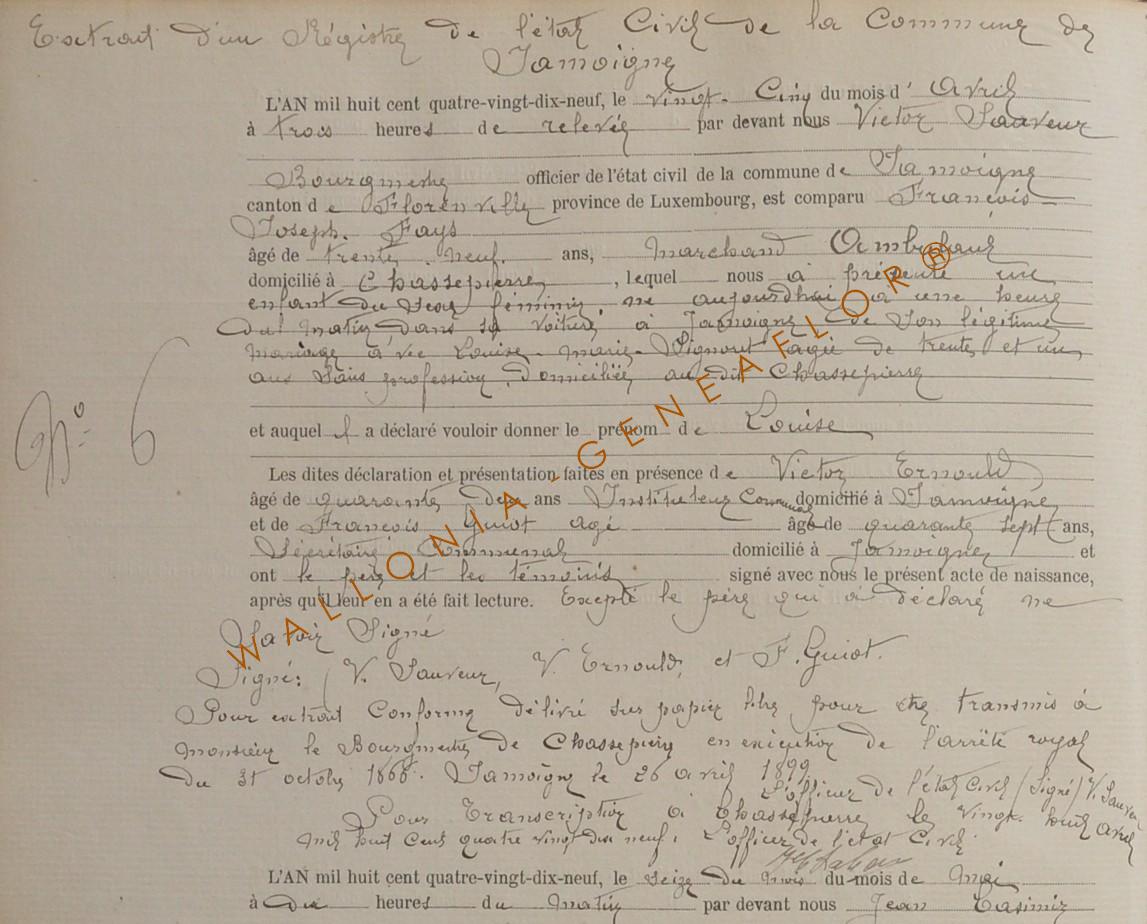 Extrait d'un Régistre de l'état Civil de la Commune de
Jamoigne
L'AN mil huit cent quatre-vingt-dix-neuf, le vingt-Cinq du mois d'Avril
à trois heures de relevée par devant nous Victor Sauveur
Bourgmestre officier de l'état civil de la commune de Jamoigne
canton de Florenville province de Luxembourg, est comparu François
Joseph Fays
âgé de trente neuf ans, Marchand Ambulant
domicilié à Chassepierre, lequel nous a présenté un
enfant du Sexe féminin né aujourdhui à une heure
du matin dans sa voiture à Jamoigne de Son légitime
mariage avec Louise-Marie- agée de trente et un
ans Sans profession, domiciliée au dit Chassepierre
et auquel il a déclaré vouloir donner le prénom de Louise
Les dites déclaration et présentation faites en présence de Victor Ernould
âgé de quarante deux ans Instituteur Communal domicilié à Jamoigne
et de François Guiot agé âgé de quarante sept ans,
Sécrétaire Communal domicilié à Jamoigne et
ont le père et les témoins signé avec nous le présent acte de naissance,
après qu'il leur en a été fait lecture. Excepté le père qui a déclaré ne
Savoir Signé
Signé: V. Sauveur, V. Ernould, et F. Guiot.
Pour extrait Conforme délivré sur papier libre pour être transmis à
Monsieur le Bourgmestre de Chassepierre en exécution de l'arrêté royal
du 31 octobre Jamoigne le 26 avril 1899
L'officier de l'état Civil (Signé) V. Sauveur
Pour Transcription à Chassepierre le Vingt huit avril
Mil huit Cent quatre vingt dix neuf. L'officier de l'état Civil.
N° 6
L'AN mil huit cent quatre-vingt-dix-neuf, le seize du mois du mois de Mai
à dix heures du matin par devant nous Jean Casimir
WALLONIA-GENEAFLOR®